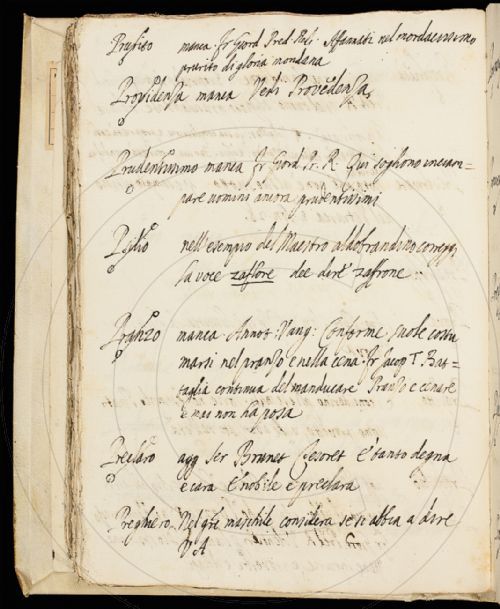 Prurito manca. Fr Giord Pred. Rifl. Affannati nel mordacissimo
prurito di gloria mondana
Providensa manca Vedi Provedensa,
Prudentissimo manca Fr Giord Pr. R. Qui sogliono inciam=
pare uomini ancora prudentissimi
nell'esempio del Maestro aldobrandino corregg.
la voce zaffore dee dire zaffrone
Pranzo manca Annot: Vang: Conforme suole costu
marsi nel pranso e nella cena. Fr Jacop T. Bat=
taglia continua del manducare Pranso e cenare
e mai non ha posa
Preclaro agg Ser Brunet Tesoret E' tanto degna
e cara E' nobile e preclara
Preghero Nel gñe maschile considera se si abbia a dire
V. A